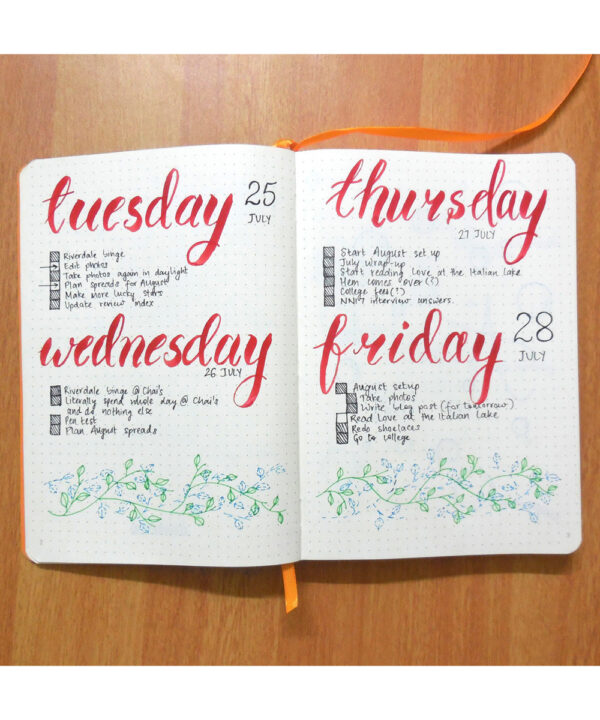 tuesday 25
JULY
Riverdale binge
Edit photos
Take photos again in daylight
Plan spreads for August
Make more lucky stars
Update review index
wednesday
26 JULY
Riverdale binge @ Chai's
Literally spend whole day @ Chai's
and do nothing else
Pen test
Plan August spreads
thursday
27 JULY
Start August set up
July wrap-up
Start reading Love at the Italian Lake
Hem comes over(?)
College fees(?)
interview answers.
friday 28
JULY
August setup
Take photos
Write blog post (for tomorrow)
Read Love at the Italian Lake
Redo shoelaces
Go to college